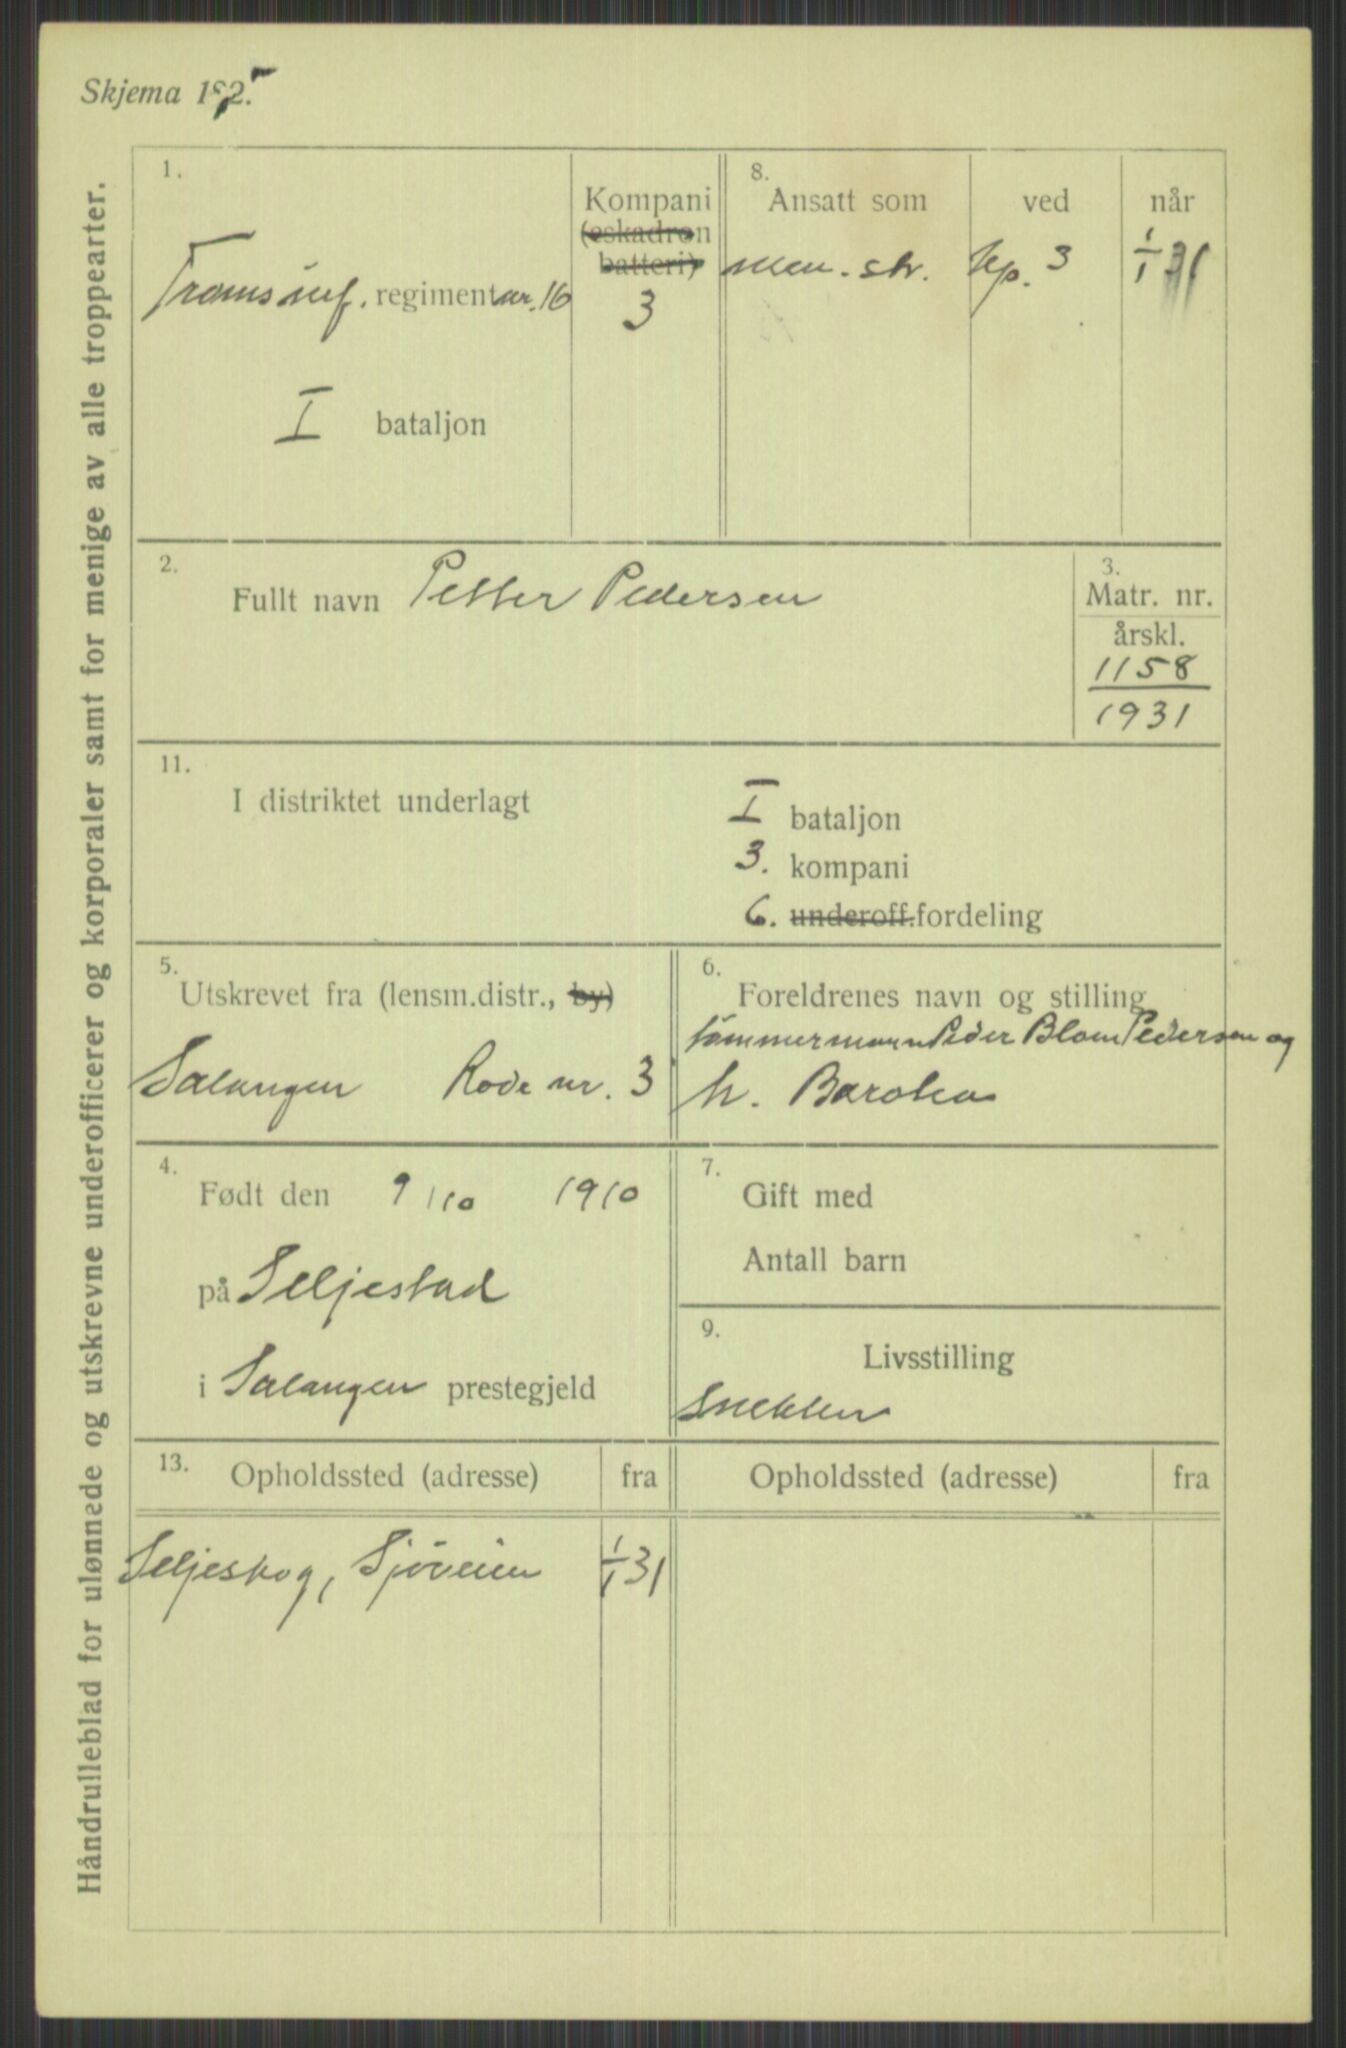 Skjema 1
Håndrulleblad for ulønnede og utskrevne underofficerer og korporaler samt for menige av alle troppearter.
1.
Troms inf. regiment nr. 16
I bataljon
Kompani
(eskadron
batteri)
3
8.
Ansatt som
men. str.
ved
kp. 3
når
1/1 31
2.
Fullt navn Petter Pedersen
3.
Matr. nr.
årskl.
1158
1931
11.
I distriktet underlagt
I bataljon
3. kompani
6. underoff.fordeling
5.
Utskrevet fra (lensm.distr., by)
Salangen Rode nr. 3
6.
Foreldrenes navn og stilling
tømmermann Peder Blom Pedersen og
h. Barolea
4.
Født den 9/10 1910
på Seljestad
i Salangen prestegjeld
7.
Gift med
Antall barn
9.
Livsstilling
Snekker
13.
Opholdssted (adresse) fra
Opholdssted (adresse) fra
Seljeskog, Sjöveien 1/1 31